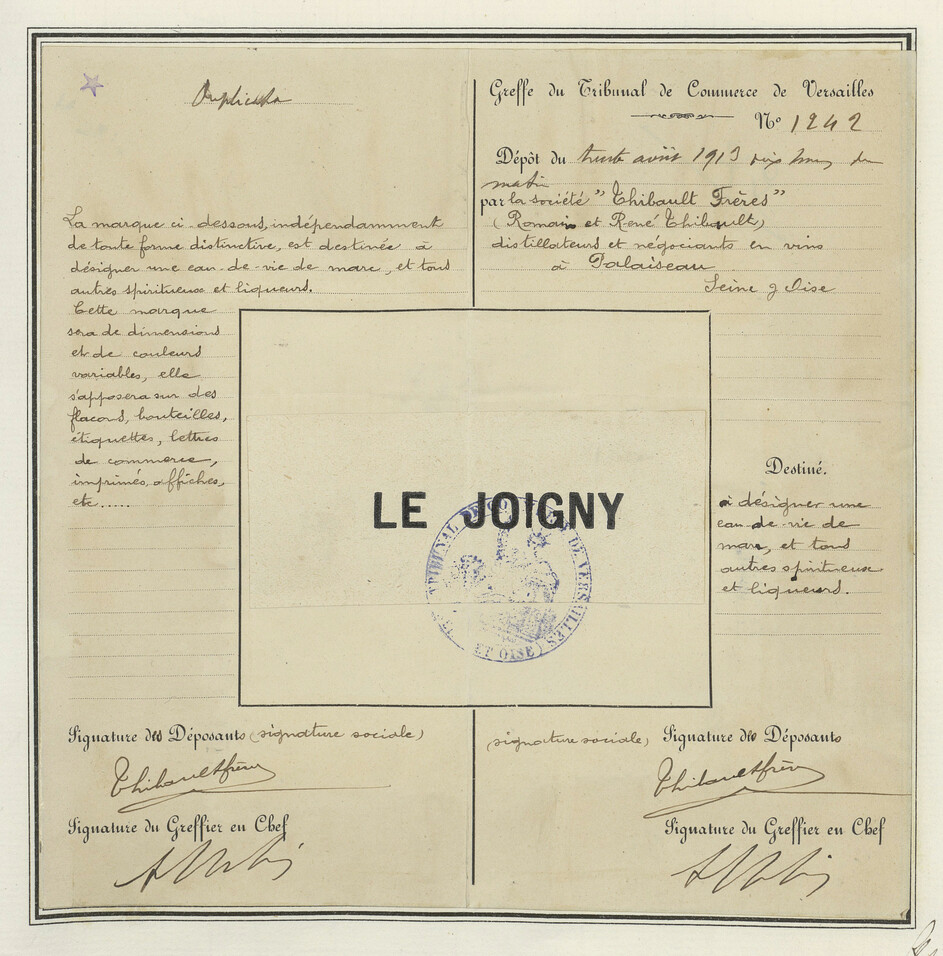 Duplicata
La marque ci-dessous, indépendamment
de toute forme distinctive, est destinée à
désigner une eau-de-vie de marc, et tous
autres spiritueux et liqueurs.
Cette marque
sera de dimensions
et de couleurs
variables, elle
s'apposera sur des
flacons, bouteilles,
étiquettes, lettres
de commerce,
imprimés, affiches,
etc.....
Greffe du Tribunal de Commerce de Versailles
No 1242
Dépôt du trente août 1913 dix heures du
matin
par la société "Thibault Frères"
(Romain et René Thibault)
distillateurs et négociants en vins
à Palaiseau
Seine & Oise
LE JOIGNY
TRIBUNAL DE COMMERCE DE VERSAILLES
ET OISE)
Destiné.
à désigner une
eau-de-vie de
marc, et tous
autres spiritueux
et liqueurs.
Signature des Déposants (signature sociale)
Thibault frères
Signature du Greffier en Chef
(signature sociale) Signature des Déposants
Thibault frères
Signature du Greffier en Chef